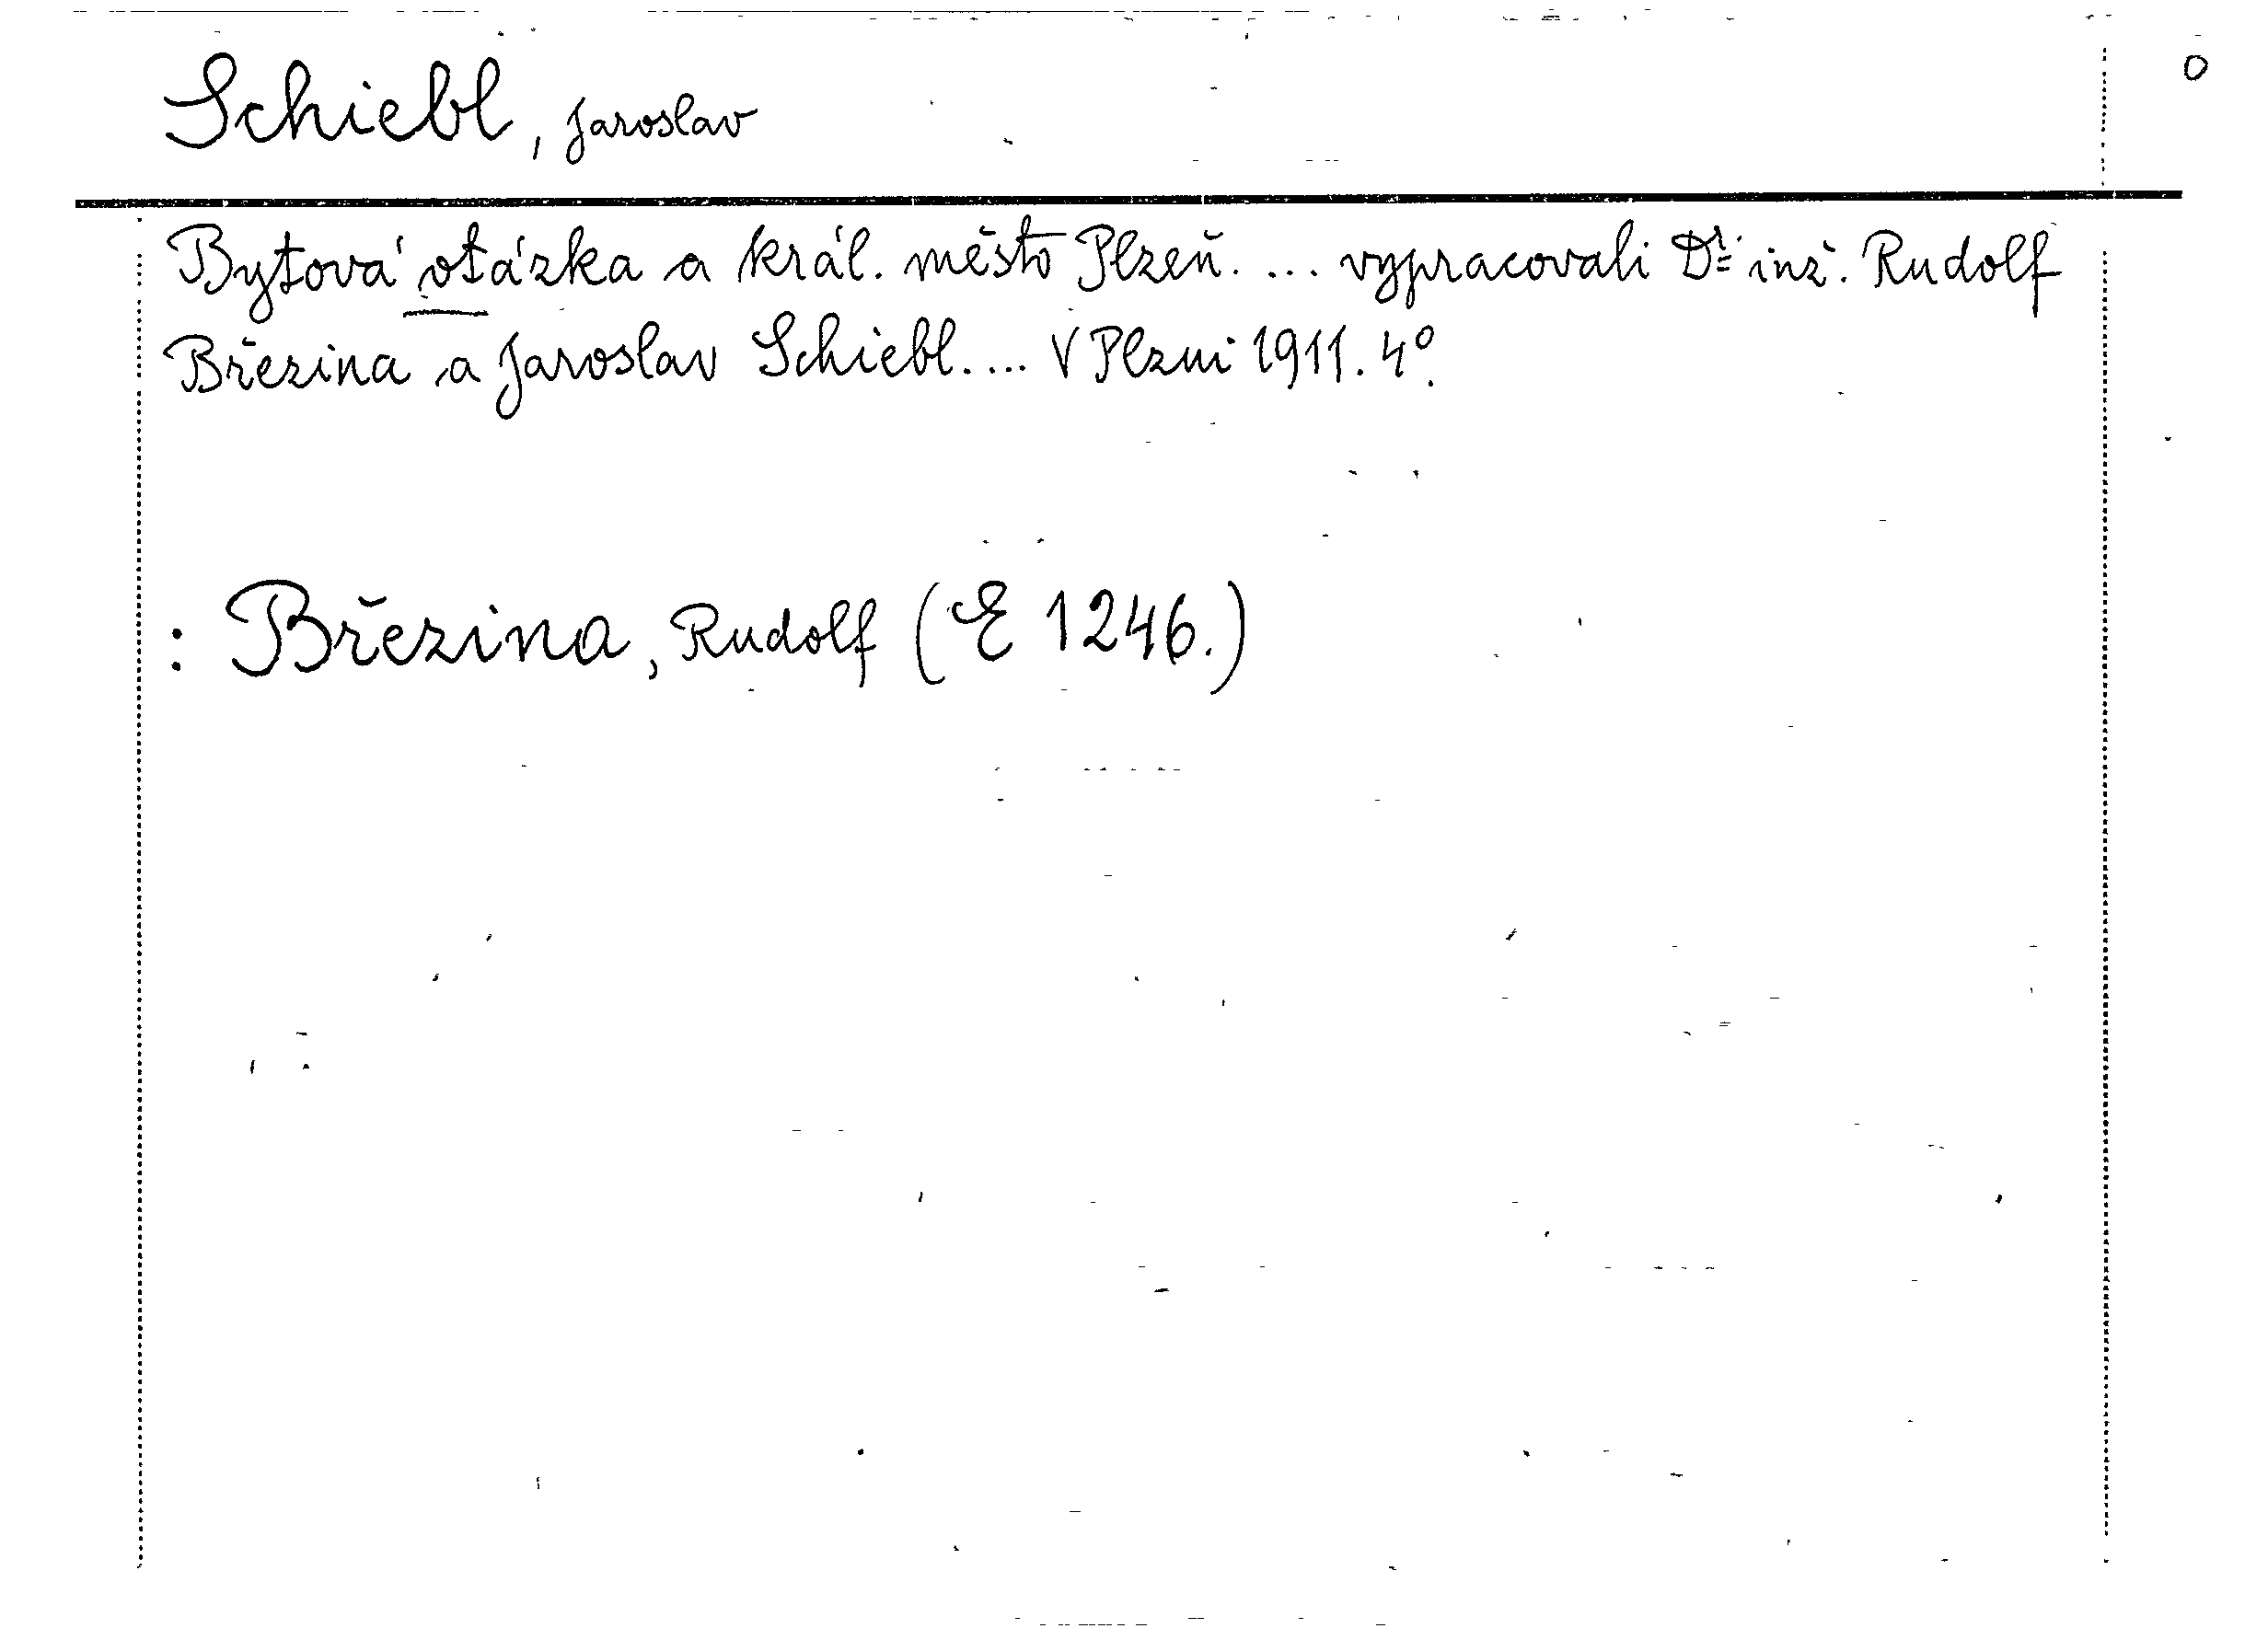 Schiebl, Jaroslav
O
Bytová otázka a král. město Plzeň. ... vypracovali Dr. inž. Rudolf
Březina a Jaroslav Schiebl.... V Plzni 1911. 4°.
: Březina, Rudolf (E 1246.)